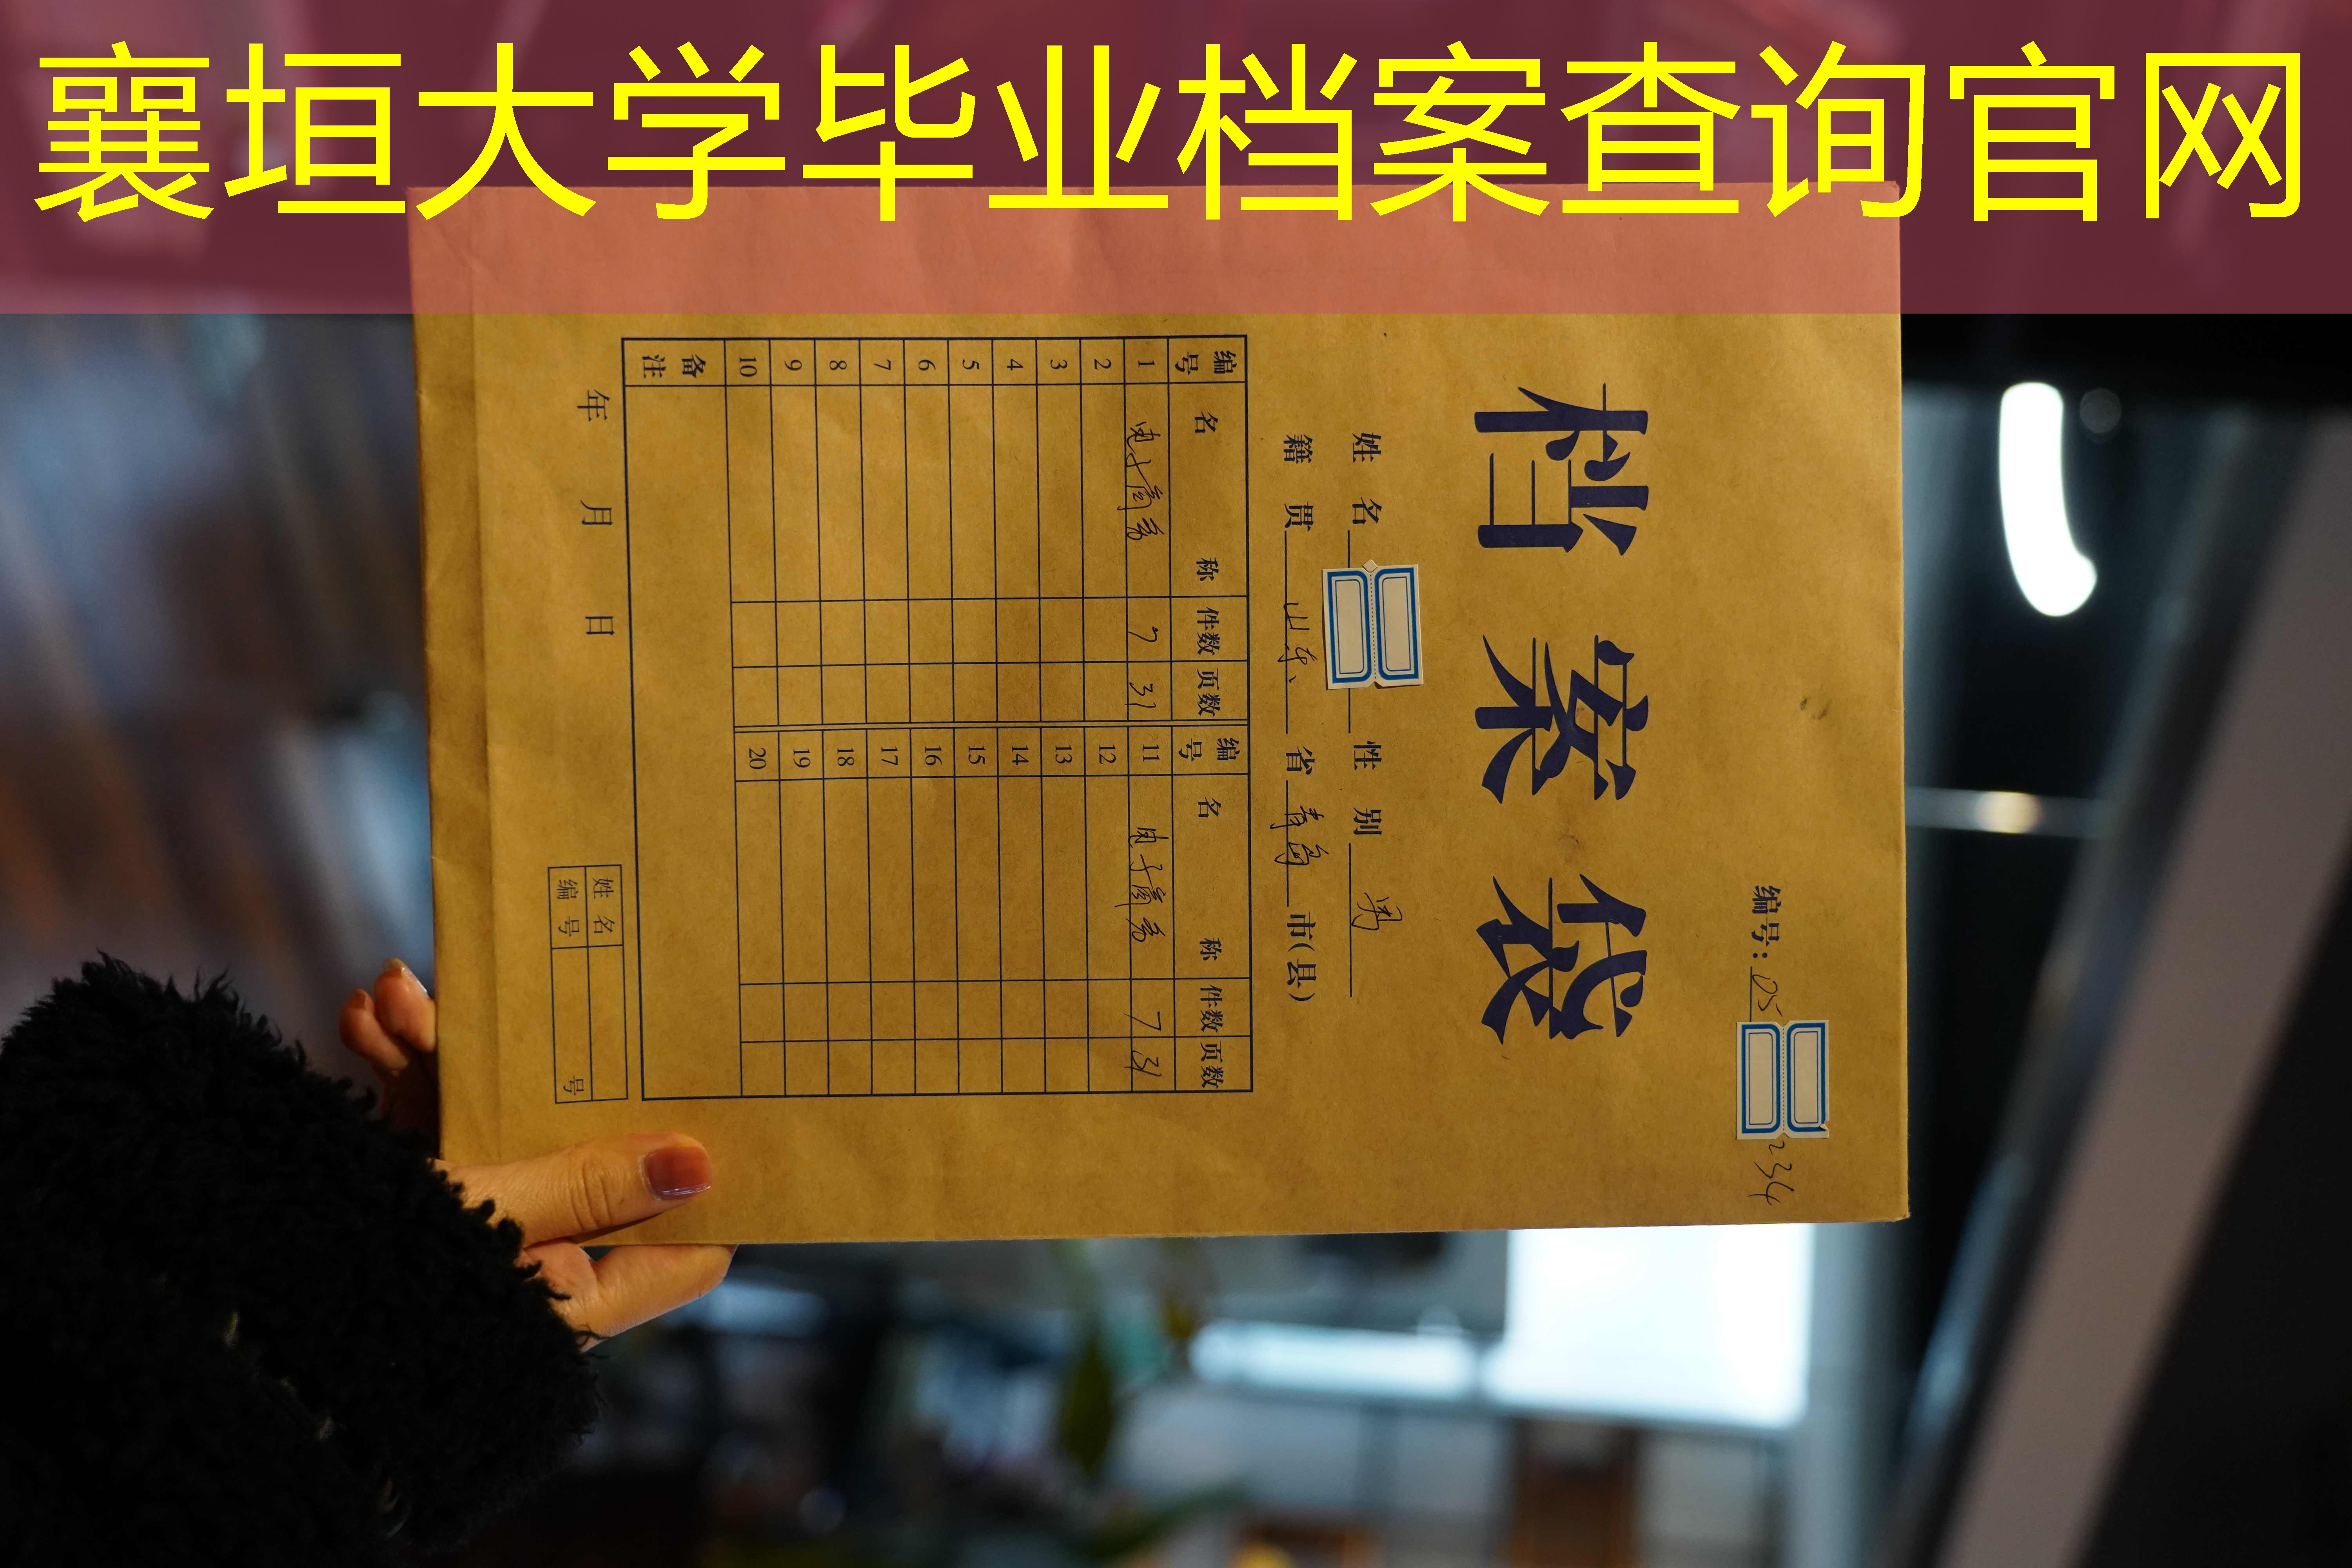 襄垣大学毕业档案查询官网
编号：05
234
档案袋
姓名 性别 男
籍贯 山东 省 青岛 市(县)
编号 名称 件数 页数 编号 名称 件数 页数
1 电子商务 7 31 11 电子商务 7 31
2 12
3 13
4 14
5 15
6 16
7 17
8 18
9 19
10 20
备注
年 月 日
姓名
编号 号